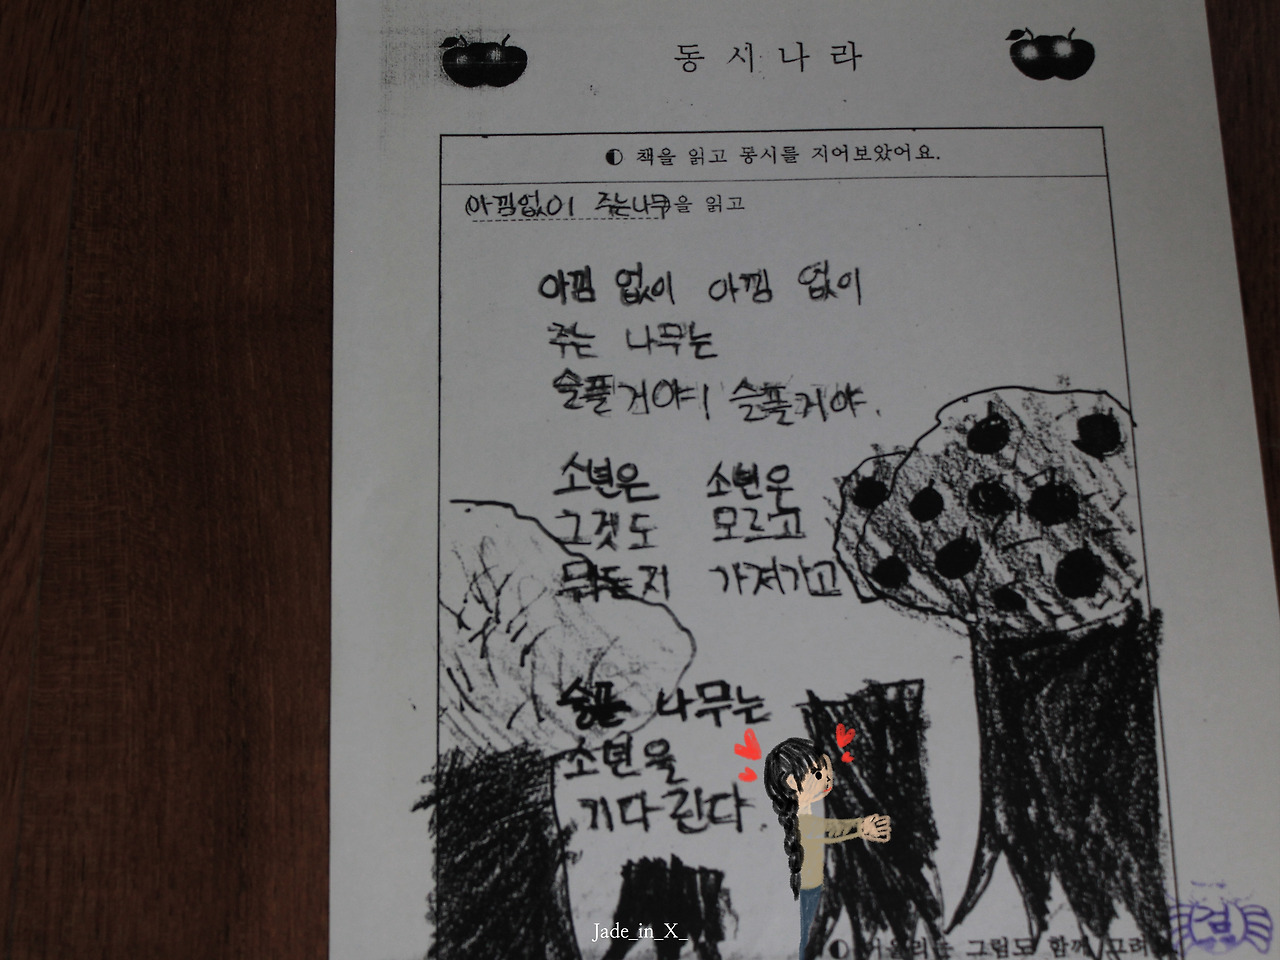 동시나라
◐ 책을 읽고 동시를 지어보았어요.
(아낌없이 주는나무)을 읽고
아낌 없이 아낌 없이
주는 나무는
슬플거야 슬플거야.
소년은 소년은
그것도 모르고
뭐든지 가져가고
슬픈 나무는
소년을
기다린다.
Jade_in_X_
◐ 어울리는 그림도 함께
검